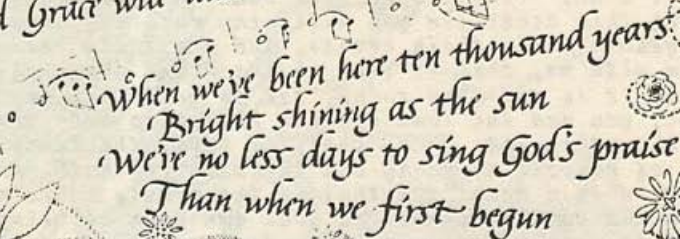 Grace will
When we've been here ten thousand years
Bright shining as the sun
We've no less days to sing God's praise
Than when we first begun